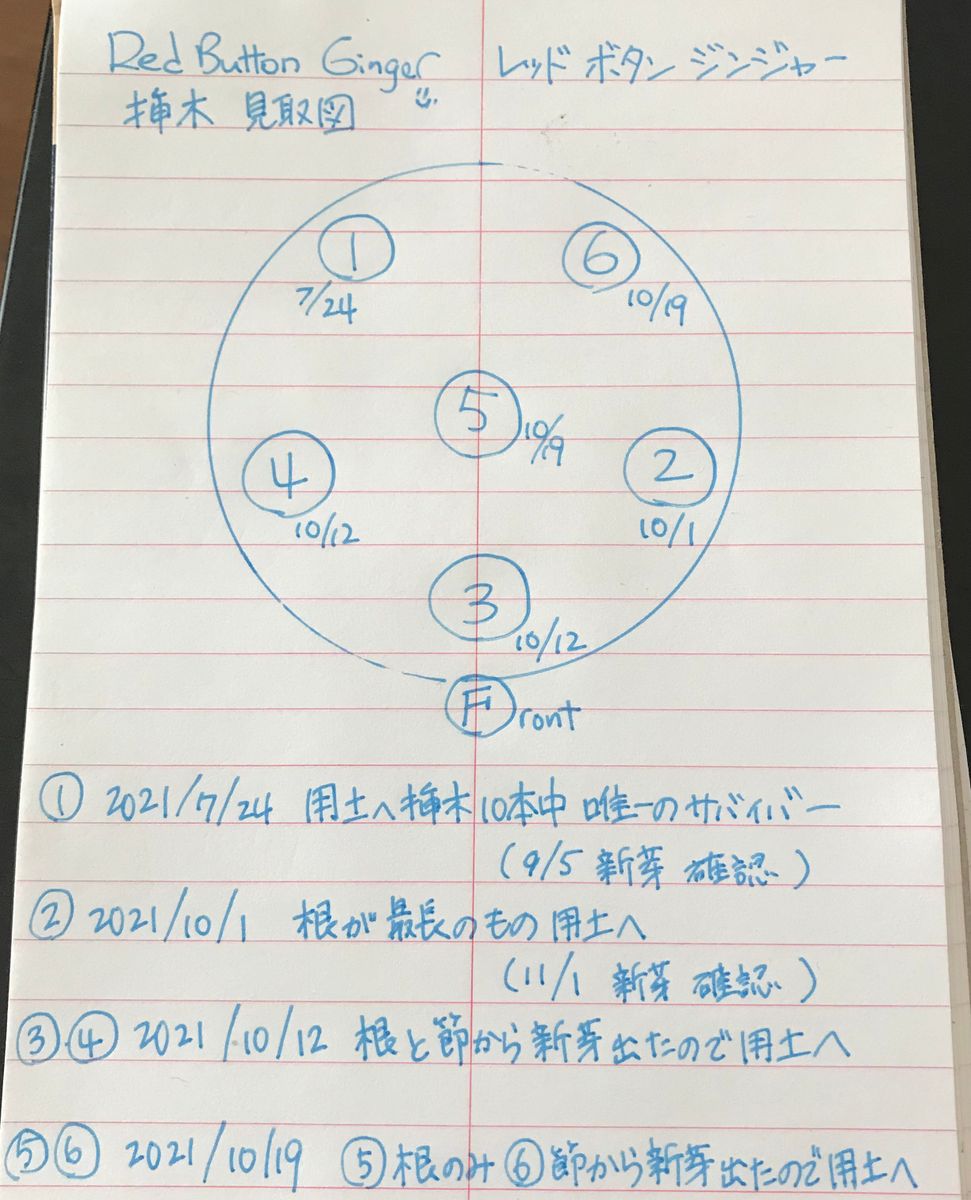 Red Button Ginger レッド ボタン ジンジャー
挿木 見取図
① ⑥
7/24 10/19
⑤ 10/19
④ ②
10/12 10/1
③
10/12
Ⓕront
① 2021/7/24 用土へ挿木10本中 唯一のサバイバー
(9/5 新芽 確認)
② 2021/10/1 根が最長のもの 用土へ
(11/1 新芽 確認)
③④ 2021/10/12 根と節から新芽出たので用土へ
⑤⑥ 2021/10/19 ⑤根のみ⑥節から新芽出たので用土へ